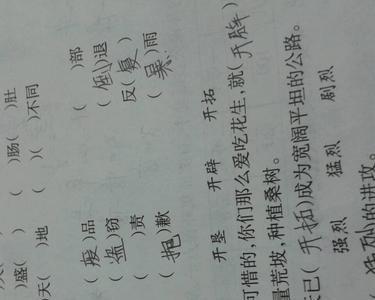 )盛( ) ( )肠( )肚
天( )地 ( )( )不同
(废)品 ( )部
(盗)窃 (倒)退
( )责 反(复)
(抱)歉 ( )雨
开垦 开辟 开拓
可惜的,你们那么爱吃花生,就(开辟
量荒坡,种植桑树。
已(开拓)成为宽阔平坦的公路。
强烈 猛烈 剧烈
猛烈的进攻。